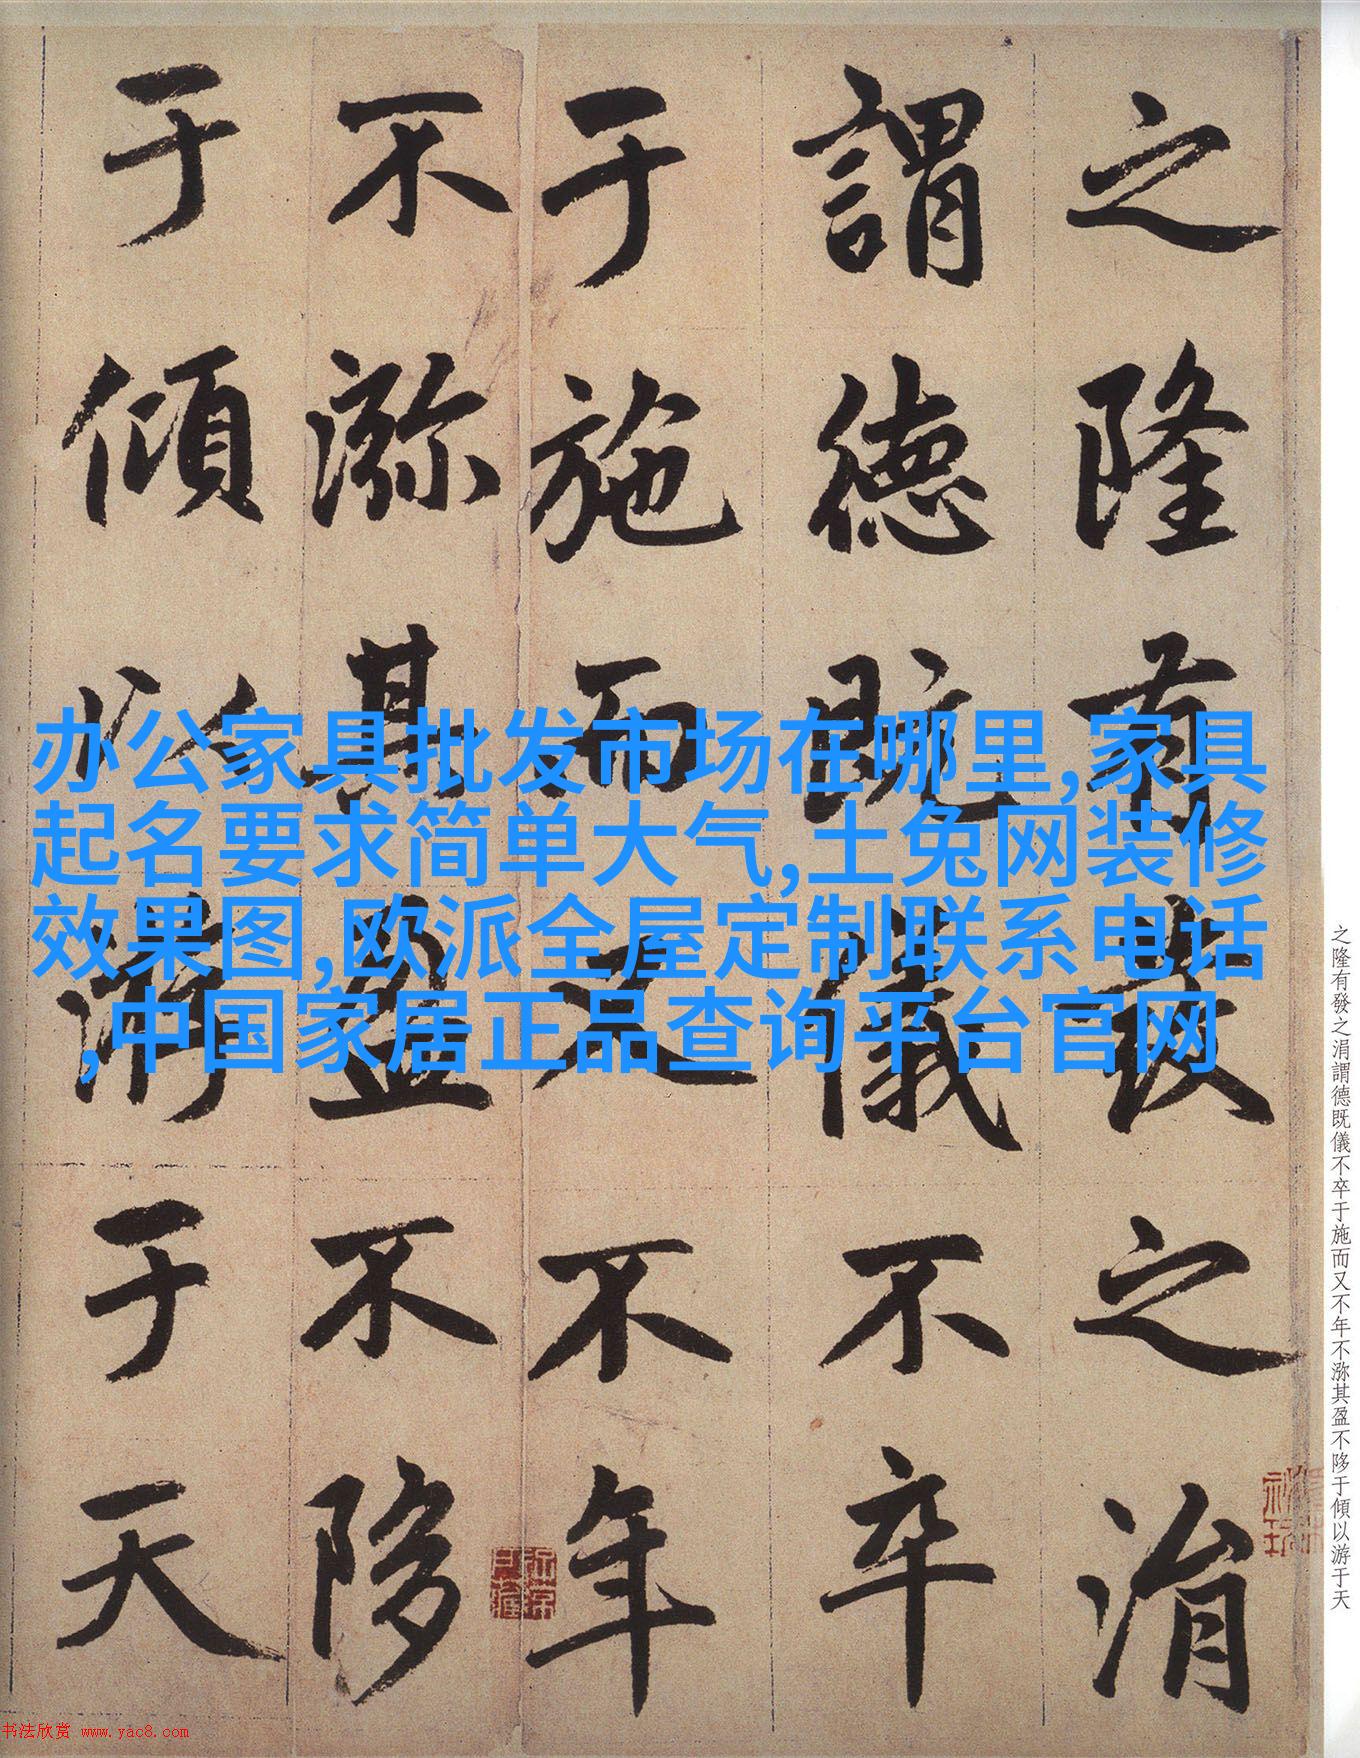 之隆有發之涓
謂德既儀不卒
于施而又不年
不㳽其盈不陊
于傾以游于天
办公家具批发市场在哪里,家具
起名要求简单大气,土兔网装修
效果图,欧派全屋定制联系电话
,中国家居正品查询平台官网
之隆有發之涓謂德既儀不卒于施而又不年不㳽其盈不陊于傾以游于天
书法欣赏 www.yac8.com